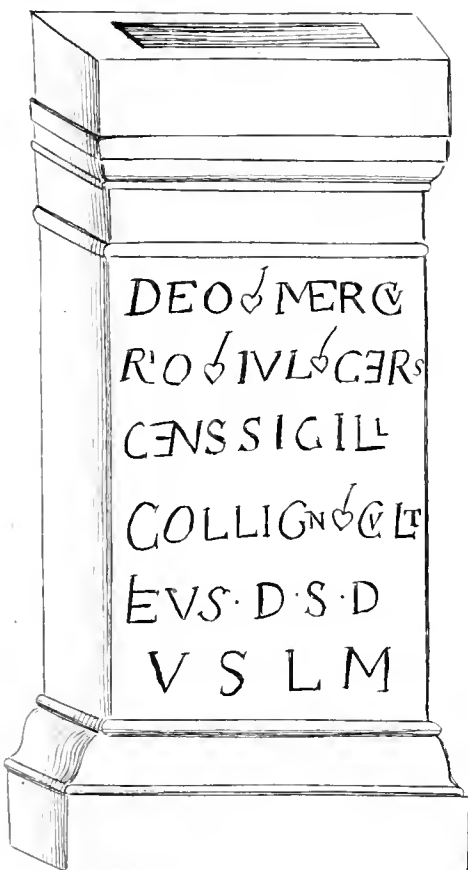 DEO MERCV
RIO IVL CERS
CENS SIGILL
COLLIGN CVLT
EVS · D · S · D
V S L M